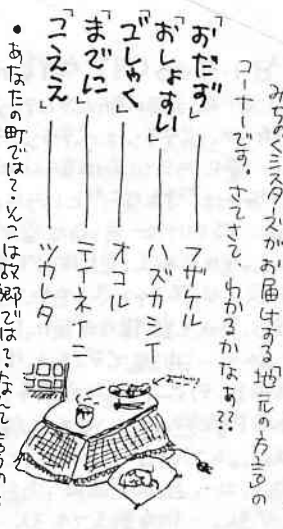 みちのくシスターズがお届けする「地元の方言」の
コーナーです。さてさて、わかるかなぁ??
「おだず」――フザケル
「おしょすい」――ハズカシイ
「ごしゃく」――オコル
「までに」――テイネイニ
「こええ」――ツカレタ
●あなたの町では?、故郷では?、なんて言うの